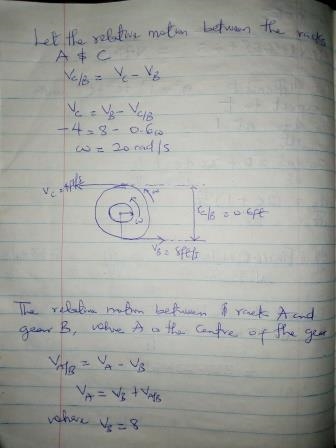 Let the relative motion between the racks
A & C
V_C/B = V_C - V_B
V_C = V_B - V_C/B
-4 = 8 - 0.6ω
ω = 20 rad/s
V_C = 4ft/s
ω
r_C/B = 0.6ft
ω
V_B = 8ft/s
The relative motion between rack A and
gear B, where A is the centre of the gear
V_A/B = V_A - V_B
V_A = V_B + V_A/B
where V_B = 8